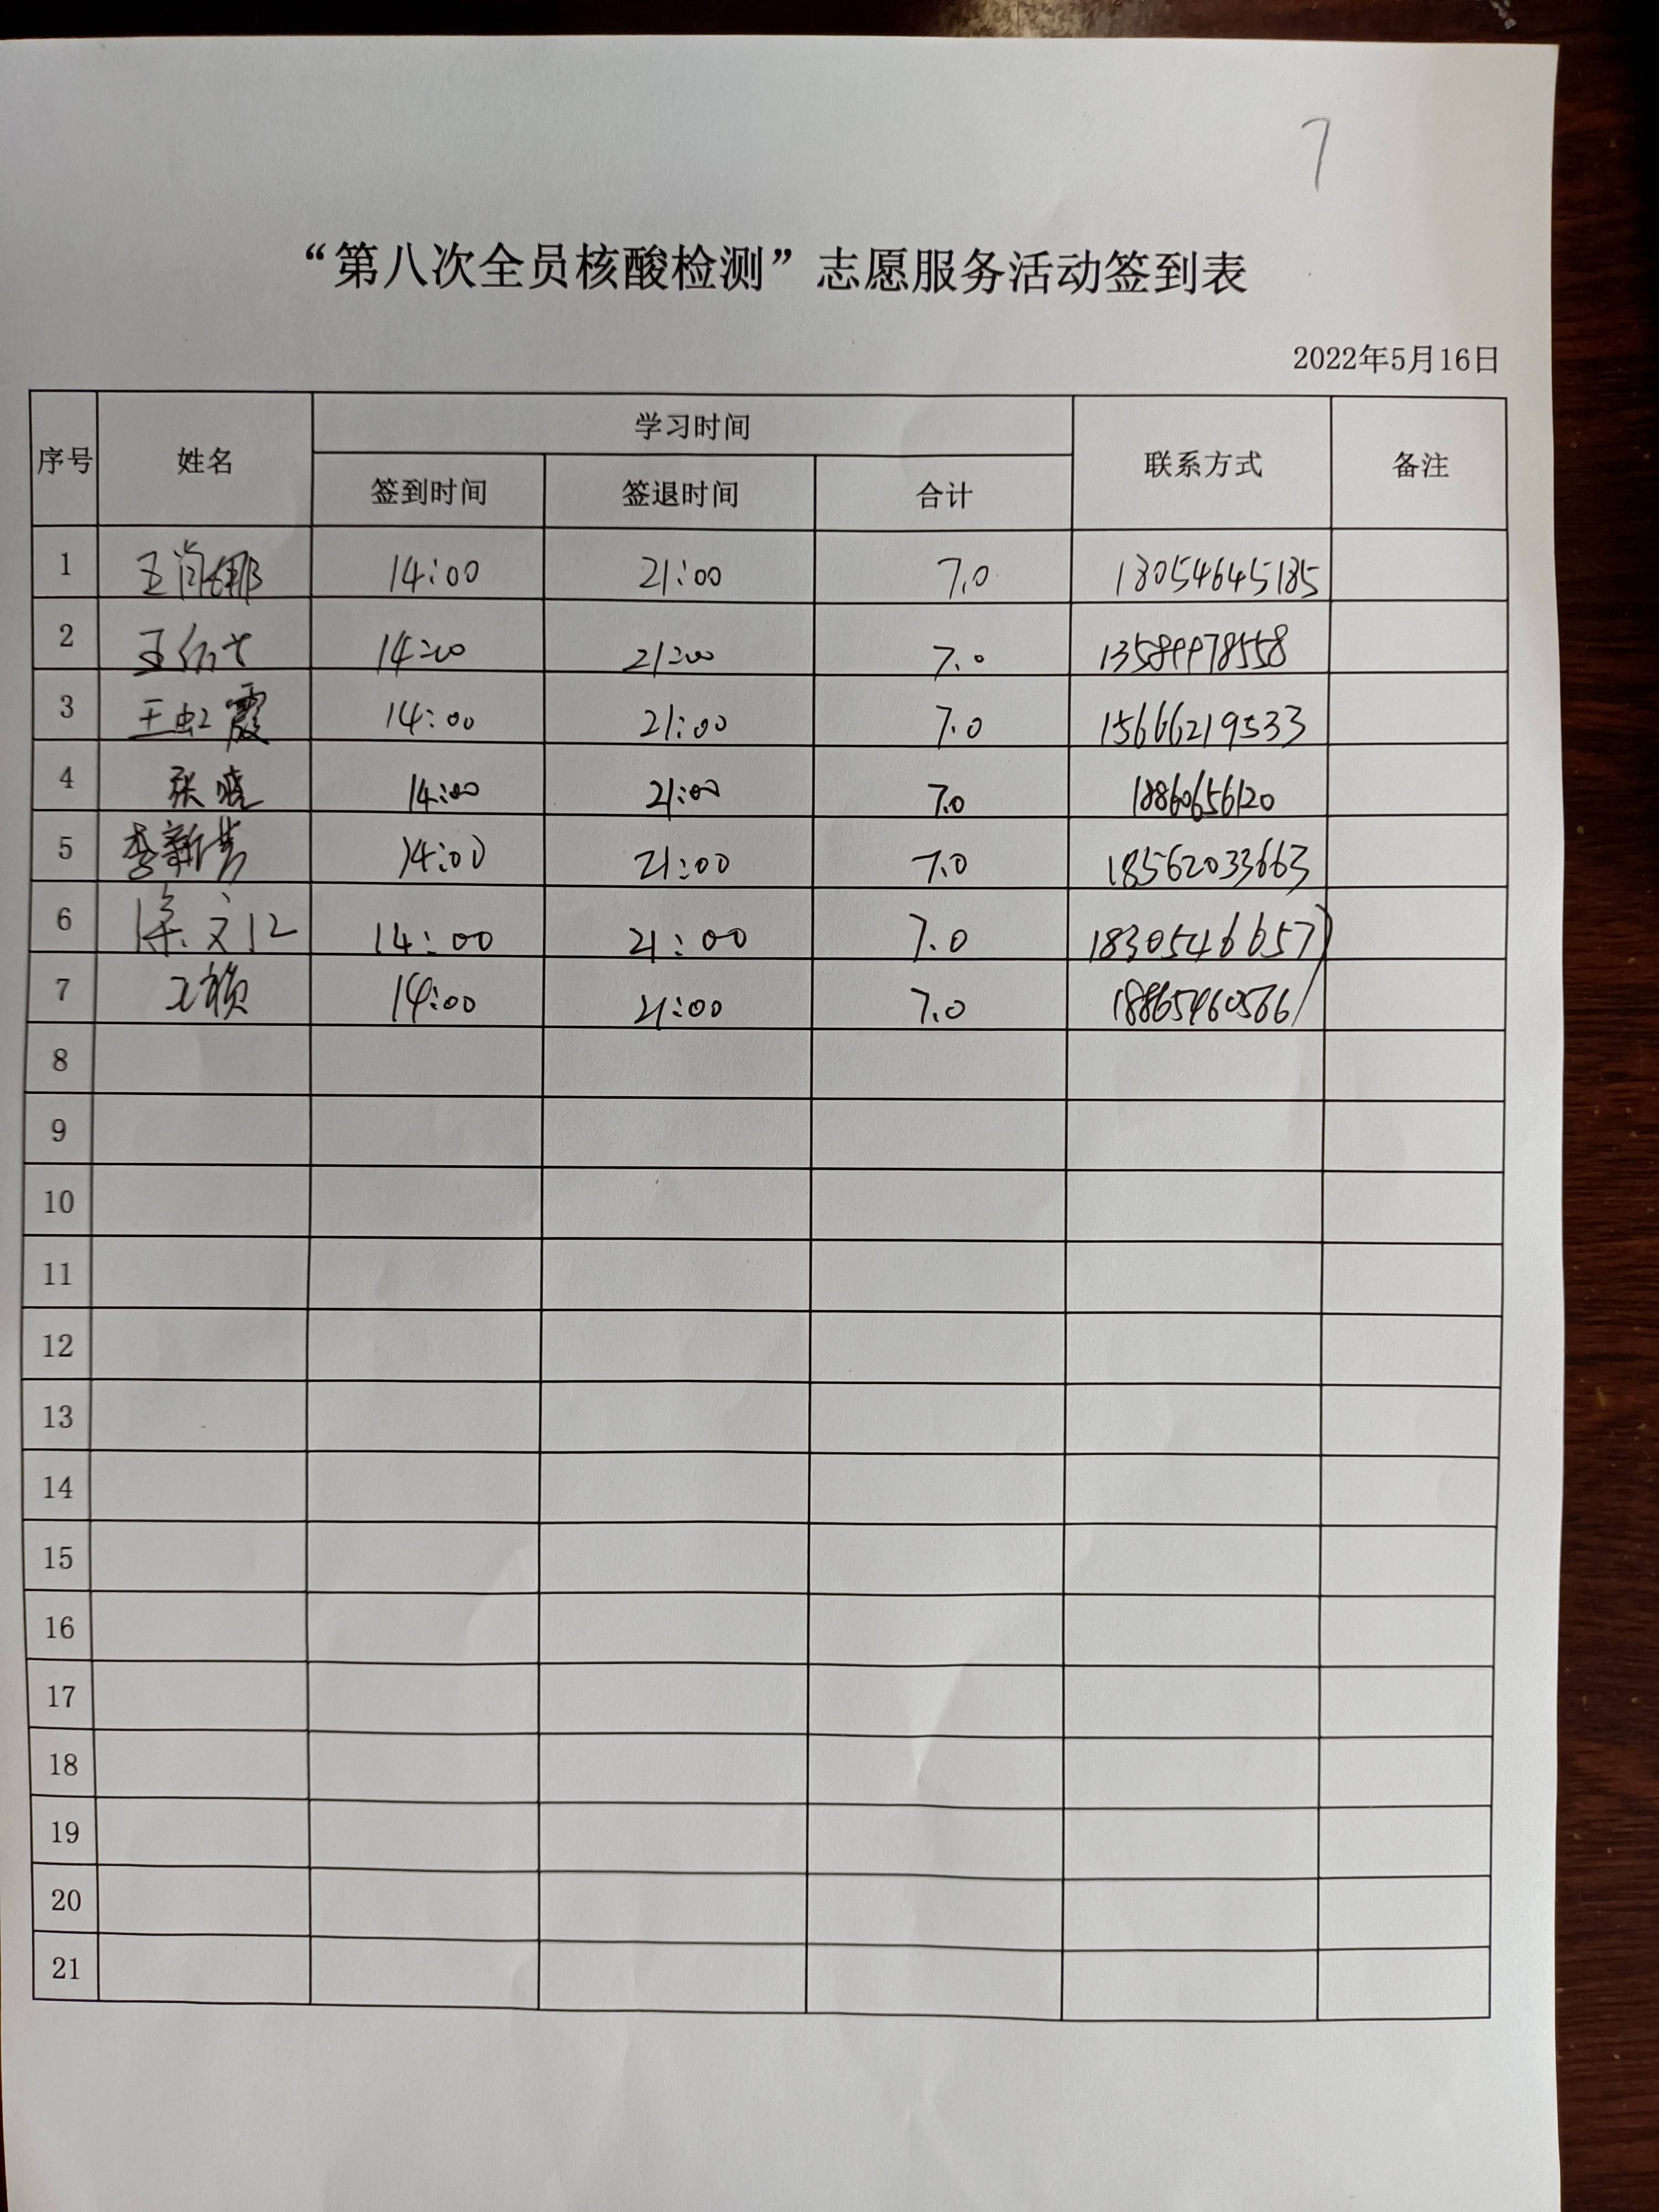 7
“第八次全员核酸检测”志愿服务活动签到表
2022年5月16日
序号 姓名 学习时间 联系方式 备注
签到时间 签退时间 合计
1 王肖娜 14:00 21:00 7.0 13054645185
2 王 14:00 21:00 7.0 13589978558
3 王虹霞 14:00 21:00 7.0 15666219533
4 张晓 14:00 21:00 7.0 18860656120
5 李新芳 14:00 21:00 7.0 18562033663
6 徐文江 14:00 21:00 7.0 18305466571
7 14:00 21:00 7.0 18865460566
8
9
10
11
12
13
14
15
16
17
18
19
20
21